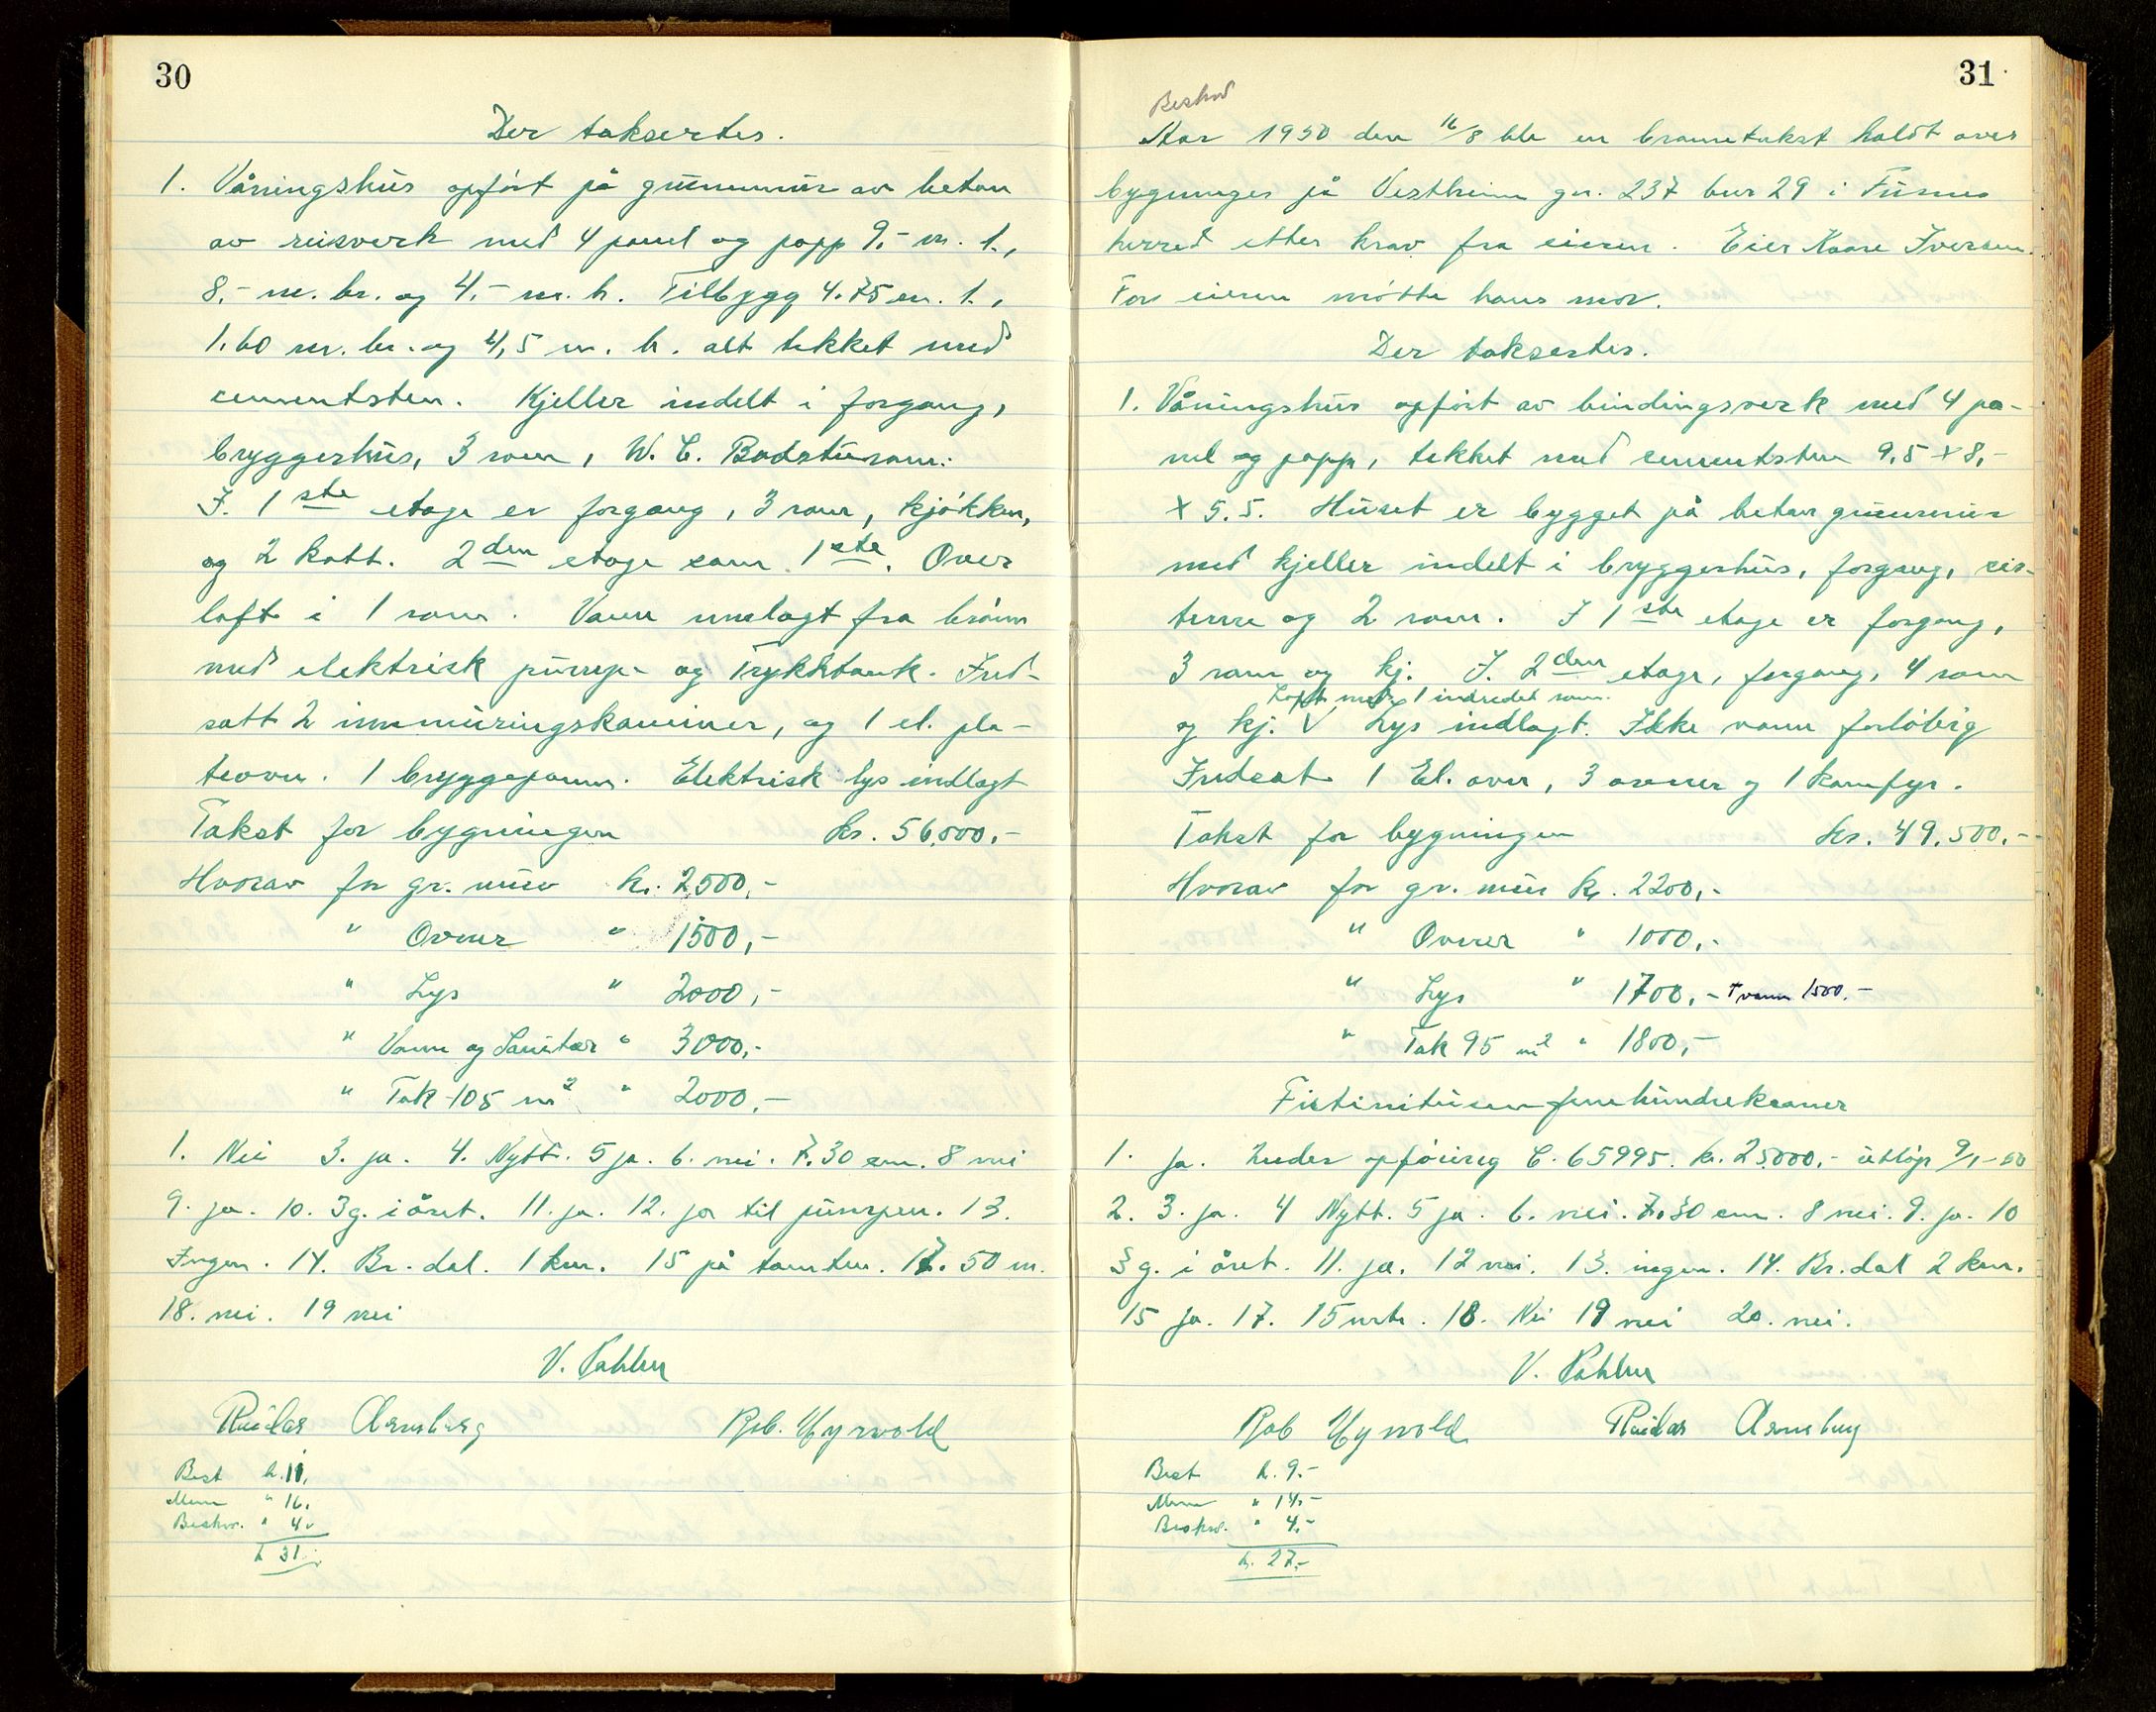 30
Der taksertes.
1. Våningshus opført på grunnmur av beton
av reisverk med 4 panel og papp 9,- m. l.,
8,- m. br. og 4,- m. h. Tilbygg 4.75 m. l.,
1.60 m. br. og 4,5 m. h. alt tekket med
cementsten. Kjeller indelt i forgang,
bryggerhus, 3 rom, W. C. Badsturom.
I. 1ste etage er forgang, 3 rom, kjøkken,
og 2 kott. 2den etage som 1ste. Over
loft i 1 rom. Vann innlagt fra brønn
med elektrisk pumpe og Trykktank. Ind-
satt 2 innmuringskaminer, og 1 el. pla-
teovn. 1 bryggepanne. Elektrisk lys indlagt
Takst for bygningen kr. 56,000.-
Hvorav for gr. mur kr. 2500,-
" Ovner " 1500,-
" Lys " 2000,-
" Vann og Sanitær " 3000,-
" Tak 105 m2 " 2000.-
1. Nei 3. ja. 4. Nytt. 5 ja. 6. nei. 7. 30 cm. 8 nei
9. ja. 10. 3 g. i året. 11. ja. 12. ja til pumpen. 13.
Ingen. 14. Br. dal. 1 km. 15 på tomten. 17. 50 m.
18. nei. 19 nei
V. Pahlm
Reidar Arnsberg Rob. Myrvold
Best k. 11,
Menn " 16,
Beskr. " 4,
k 31,-
31
Beskrd
Aar 1950 den 16/8 ble en branntakst holdt over
bygninger på Vestheim gn. 237 bnr 29 i Furnes
herred etter krav fra eieren. Eier Kaare Iversen.
For eieren møtte hans mor.
Der taksertes.
1. Våningshus opført av bindingsverk med 4 pa-
nel og papp, tekket med cementsten 9,5 x 8,-
x 5.5. Huset er bygget på beton grunnmur
med kjeller indelt i bryggerhus, forgang, cis-
terne og 2 rom. I 1ste etage er forgang,
3 rom og kj. I. 2den etage, forgang, 4 rom
Loft med 1 indredet rom.
og kj. V Lys indlagt. Ikke vann forløbig
Indsat 1 El. ovn, 3 ovner og 1 komfyr.
Takst for bygningen kr. 49.500.-
Hvorav for gr. mur kr. 2200,-
" Ovner " 1000,-
" Lys " 1700,- + vann 1500.-
" Tak 95 m2 " 1800,-
Førtinitusen femhundrekroner
1. Ja. Under opføring C. 65995. kr. 25000,- utløp 9/1-50
2. 3. ja. 4 Nytt. 5 ja. 6. nei. 7. 30 cm. 8 nei. 9. ja. 10
3 g. i året. 11. ja. 12 nei. 13. ingen. 14. Br. dal 2 km.
15 ja. 17. 15 mtr. 18. Nei 19 nei 20. nei.
V. Pahlm
Rob Myrvold Reidar Arnsberg
Best k. 9.-
Menn " 14.-
Beskr. " 4.-
k. 27.-